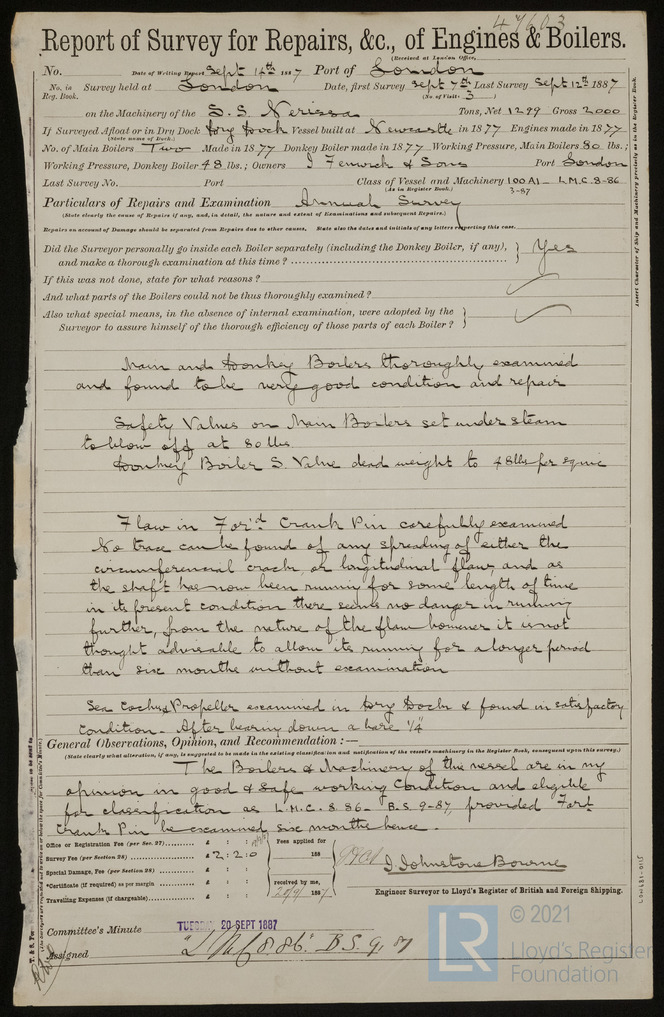 47603
Report of Survey for Repairs, &c., of Engines & Boilers.
(Received at London Office,
No. Date of Writing Report Sept 14th 1887 Port of London
No. in Reg. Book. Survey held at London Date, first Survey Sept 7th Last Survey Sept 12th 1887
(No. of Visits 3)
on the Machinery of the S.S. Nerissa Tons, Net 1299 Gross 2000
If Surveyed Afloat or in Dry Dock Dry Dock Vessel built at Newcastle in 1877 Engines made in 1877
(State name of Dock.)
No. of Main Boilers Two Made in 1877 Donkey Boiler made in 1877 Working Pressure, Main Boilers 80 lbs.;
Working Pressure, Donkey Boiler 48 lbs.; Owners J Fenwick & Sons Port London
Last Survey No. Port Class of Vessel and Machinery 100A1 - L.M.C. 8-86
(As in Register Book.) 3-87
Particulars of Repairs and Examination Annual Survey
(State clearly the cause of Repairs if any, and, in detail, the nature and extent of Examinations and subsequent Repairs.)
Repairs on account of Damage should be separated from Repairs due to other causes. State also the dates and initials of any letters respecting this case.
Did the Surveyor personally go inside each Boiler separately (including the Donkey Boiler, if any), and make a thorough examination at this time? Yes
If this was not done, state for what reasons?
And what parts of the Boilers could not be thus thoroughly examined?
Also what special means, in the absence of internal examination, were adopted by the
Surveyor to assure himself of the thorough efficiency of those parts of each Boiler?
Insert Character of Ship and Machinery precisely as in the Register Book.
Main and Donkey Boilers thoroughly examined
and found to be very good condition and repair
Safety Valves on Main Boilers set under steam
to blow off at 80 lbs.
Donkey Boiler S. Valve dead weight to 48 lbs per sq inc
Flaw in For'd Crank Pin carefully examined
No trace can be found of any spreading of either the
circumferencial crack, or longitudinal flaw, and as
the shaft has now been running for some length of time
in its present condition there seems no danger in running
further, from the nature of the flaw however it is not
thought adviseable to allow its running for a longer period
than six months without examination
Sea Cocks & Propeller examined in Dry Dock & found in satisfactory
Condition - After bearing down a bare 1/4"
General Observations, Opinion, and Recommendation:—
(State clearly what alteration, if any, is suggested to be made in the existing classification and notification of the vessel's machinery in the Register Book, consequent upon this survey.)
The Boilers & Machinery of the vessel are in my
opinion in good & safe working Condition and eligible
for classification as L.M.C. 8.86 - B.S. 9-87, provided For'd
Crank Pin be examined six months hence.
Office or Registration Fee (per Sec. 27) £ : : Fees applied for
Survey Fee (per Section 28) £ 2 : 2 : 0 188
Special Damage Fee (per Section 28) £ : :
*Certificate (if required) as per margin £ : : received by me,
Travelling Expenses (if chargeable) £ : : 20/9/1887
J. Johnstone Bourne
Engineer Surveyor to Lloyd's Register of British and Foreign Shipping.
Committee's Minute TUESDAY 20 SEPT 1887
Assigned "L.M.C 8.86" B.S. 9.87
LR © 2021
Lloyd's Register
Foundation